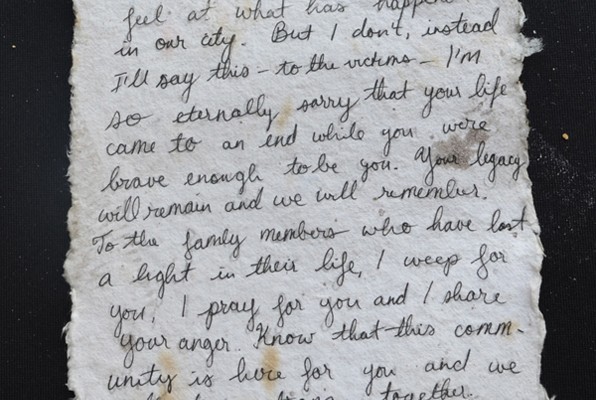 feel at what has happene
in our city. But I don't, instead
I'll say this - to the victims - I'm
so eternally sorry that your life
came to an end while you were
brave enough to be you. Your legacy
will remain and we will remember.
To the famly members who have lost
a light in their life, I weep for
you, I pray for you and I share
your anger. Know that this comm-
unity is here for you and we
together.